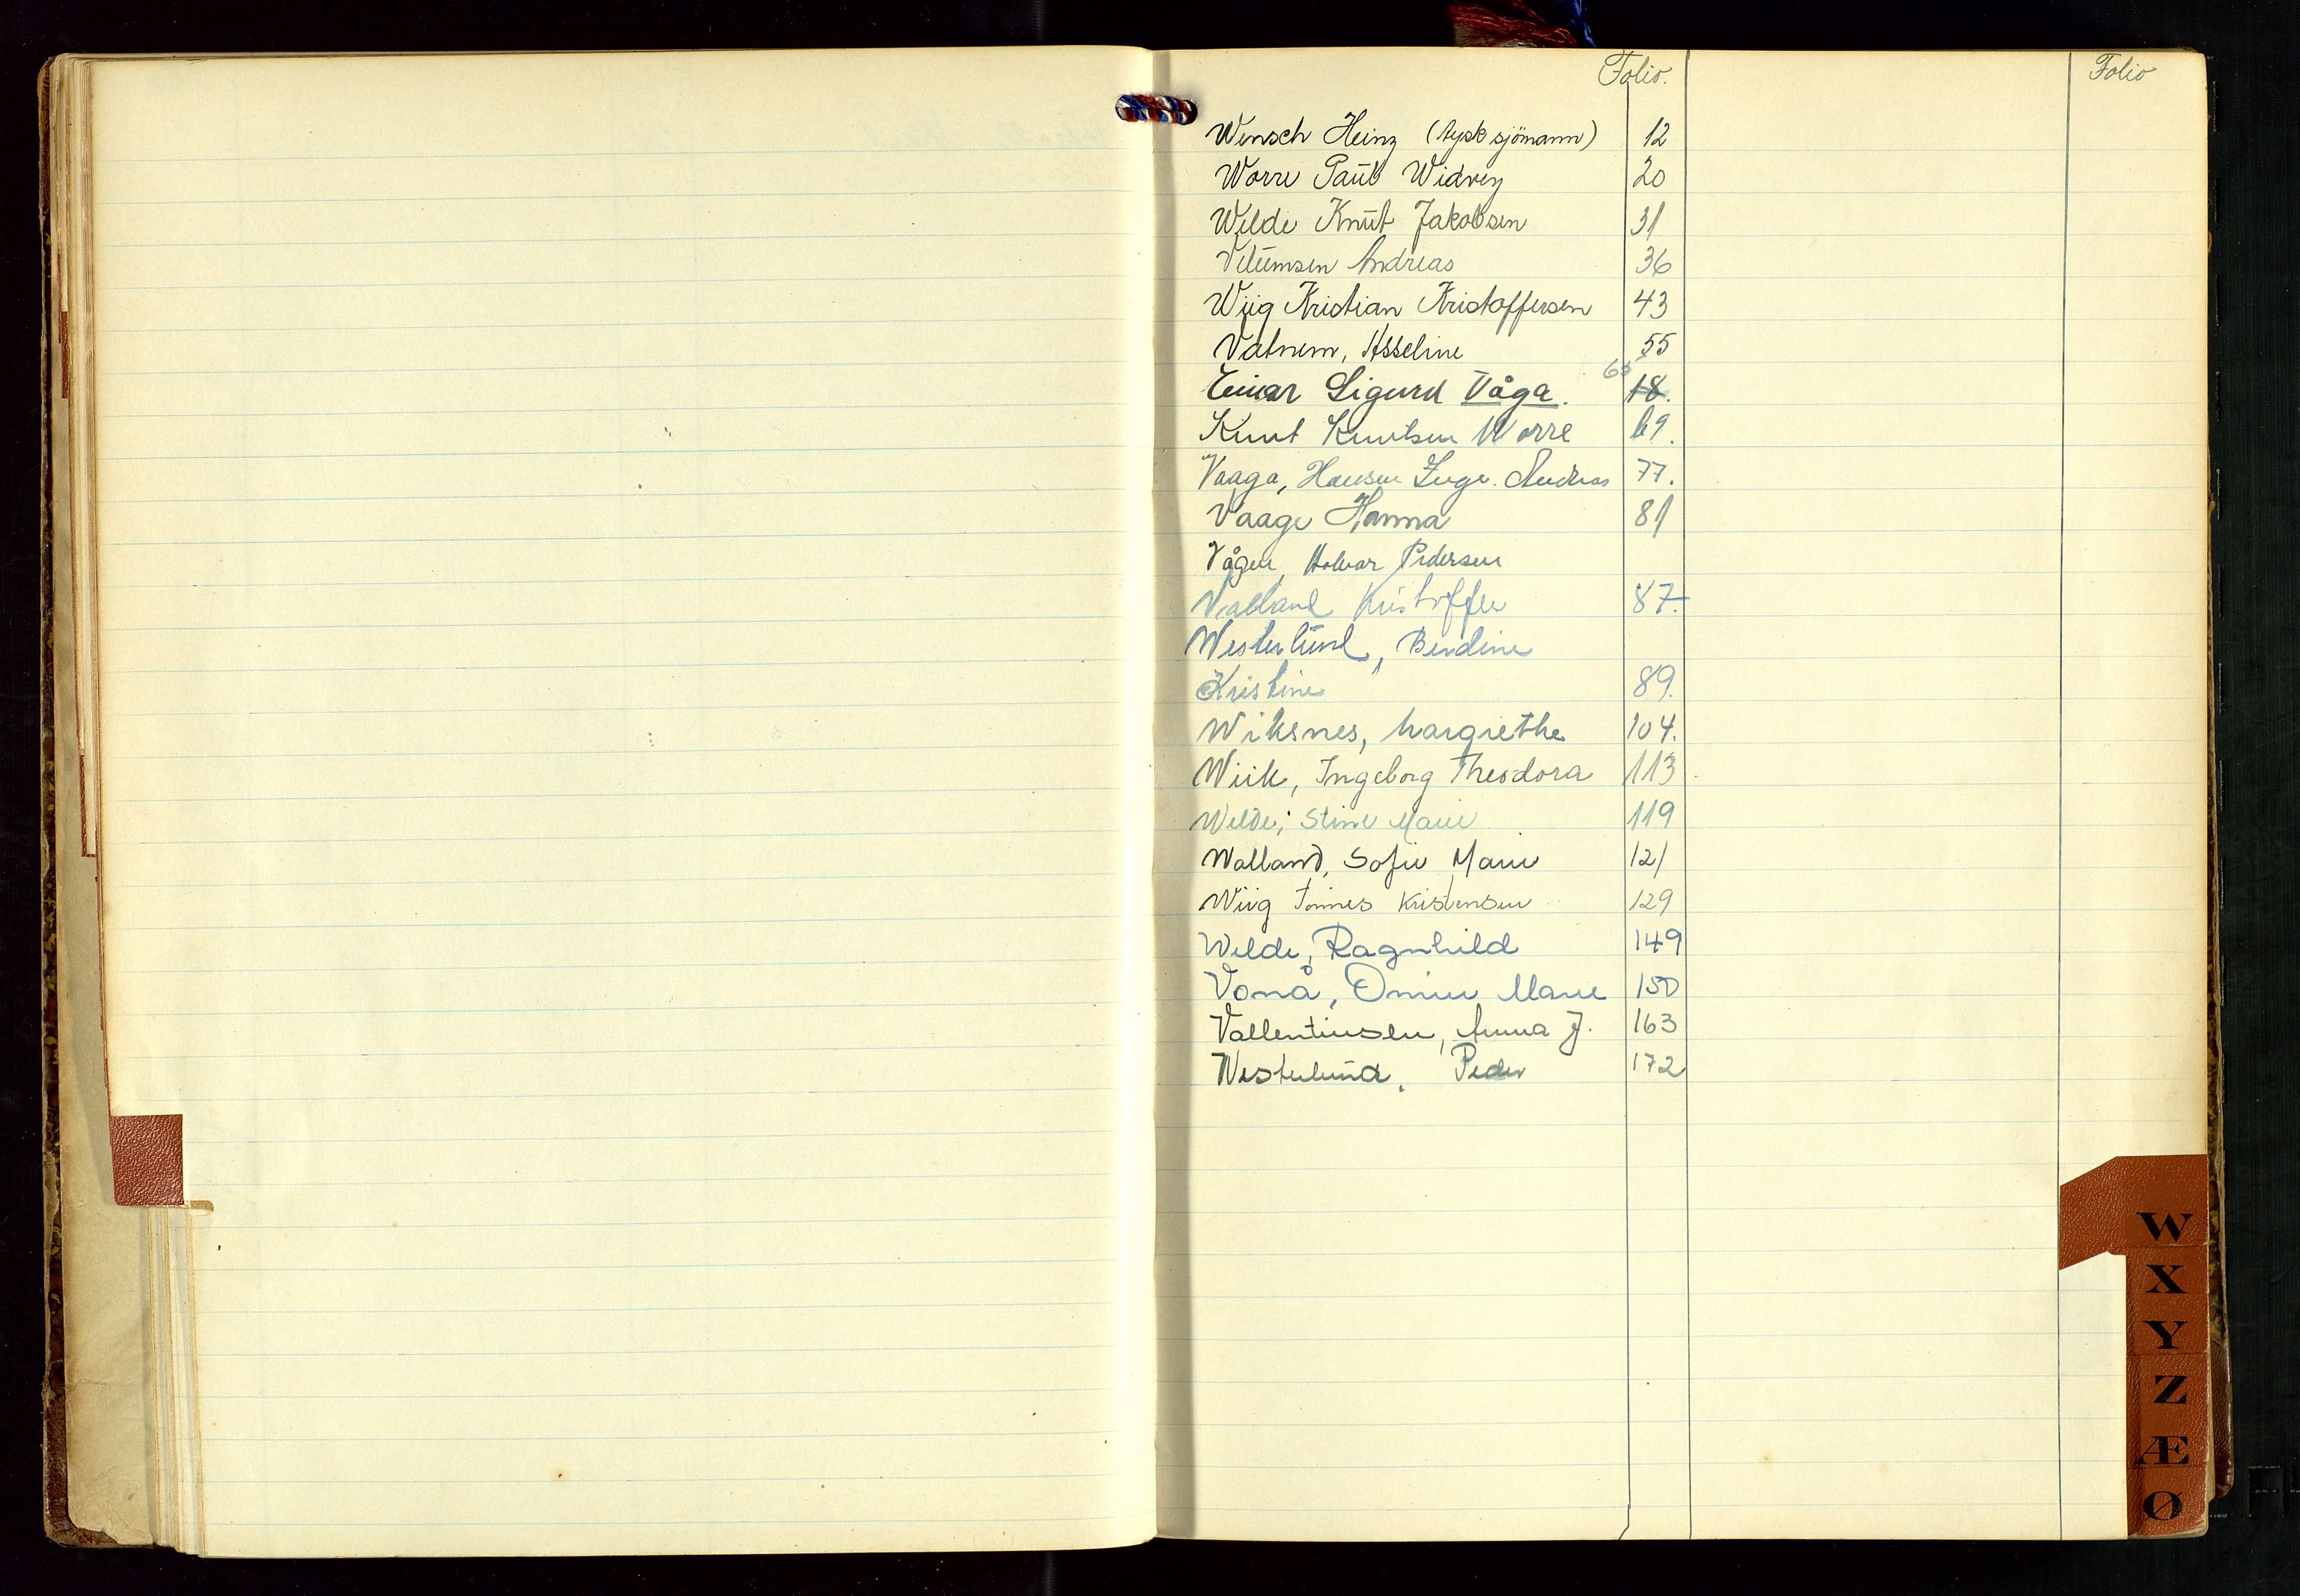 Folio.
Folio
Wensch Heinz (tysk sjömann) 12
Worre Paul Widvey 20
Welde Knut Jakobsen 31
Vilumsen Andreas 36
Wiig Kristian Kristoffersen 43
Vatnem, Asseline 55
Einar Sigurd Våga. 65 18.
Knut Knutsen Worre 69.
Vaaga, Hansen Inge. Andreas 77.
Vaage Hanna 81
Vågen, Halvar Pedersen
Valland Kristoffer 87.
Westerlund, Berdine
Kristine 89.
Wiksnes, Margrethe 104.
Wiik, Ingeborg Theodora 113
Welde, Stine Marie 119
Walland, Sofie Marie 121
Wiig Tønnes Kristensen 129
Welde, Ragnhild 149
Vonå, Omine Marie 150
Vallentinsen, Anna J. 163
Westerlund, Peder 172
W
X
Y
Z
Æ
Ø